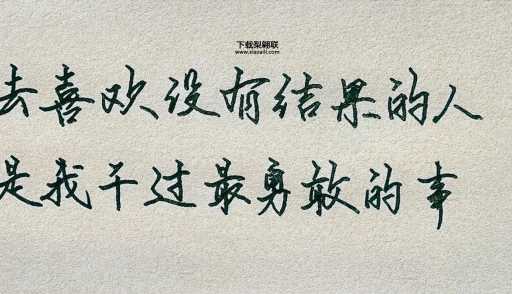 下载梨翱联
www.xiaoaili.com
去喜欢没有结果的人
是我干过最勇敢的事